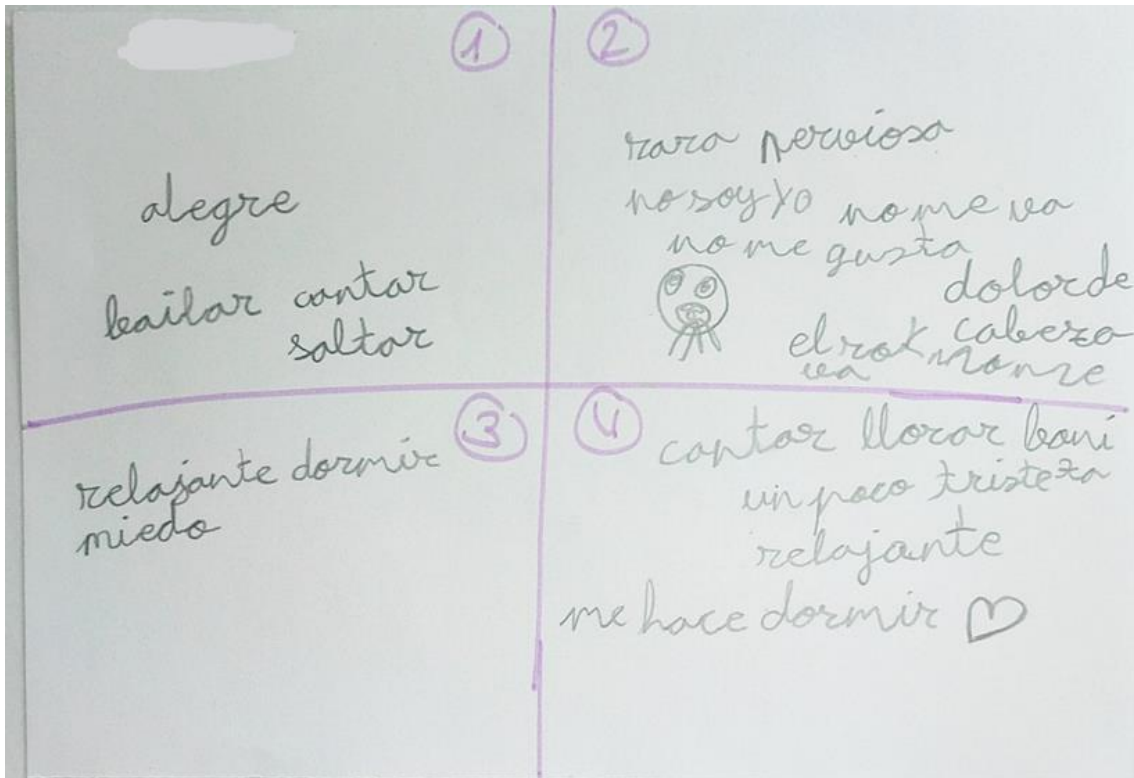 1
alegre
bailar cantar
saltar
2
rara nerviosa
no soy yo no me va
no me gusta
dolor de
cabeza
el rok no me
va
3
relajante dormir
miedo
4
cantar llorar
un poco tristeza
relajante
me hace dormir